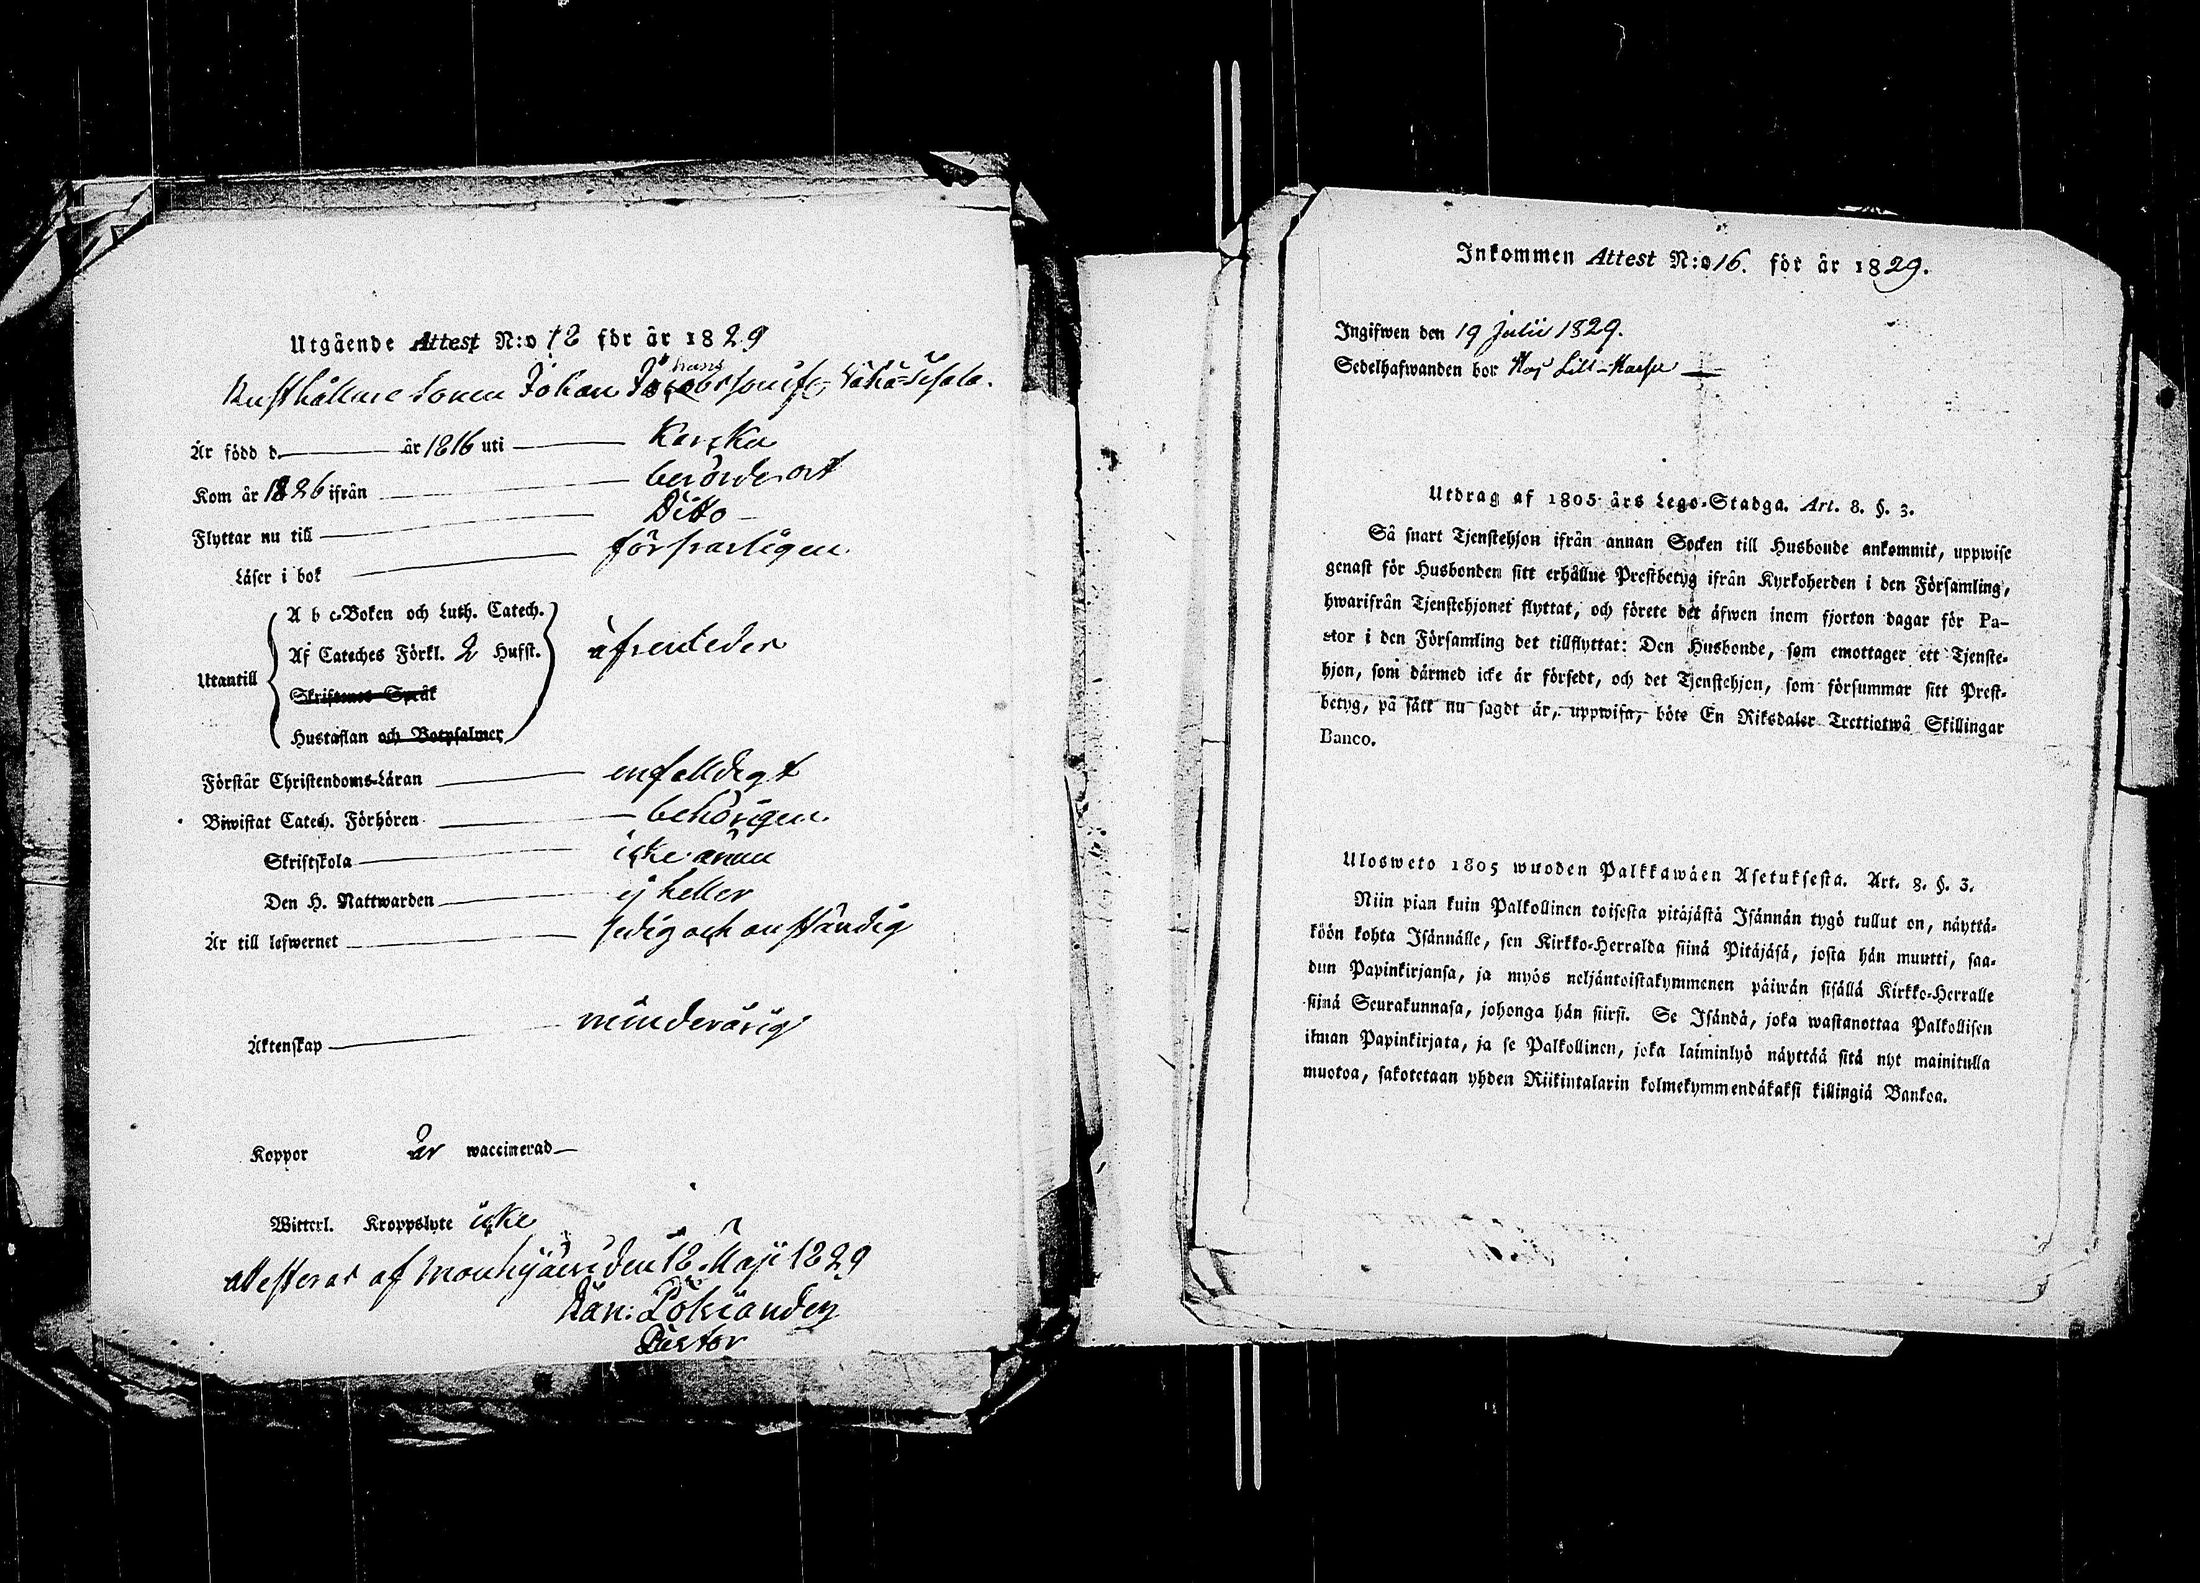 Utgående Attest N:o 12 för år 1829
Rusthållare Sonen Johan Johansson ifr. Vähä-
Är född d. år 1816 uti Karkku
Kom år 1826 ifrån berörde ort
Flyttar nu till Ditto
Läser i bok försvarligen
Utantill
A b c-Boken och Luth. Catech.
Af Cateches Förkl. 2 Hufst.
Skriftenes Språk
Hustaflan och Botpsalmer
afsevleder
Förstår Christendoms-Läran enfaldigt
Biwistat Catech. Förhören behörigen
Skriftskola icke ännu
Den H. Nattwarden ej heller
Är till lefwernet sedig och anständig
Äktenskap minderårig
Koppor är waccinerad
Witterl. Kroppslyte icke
attesterar af Mouhijärvi den 12 Maji 1829
Pastor
Inkommen Attest N:o 16. för år 1829.
Ingifwen den 19 Julii 1829.
Sedelhafwanden bor Hos Lill-
Utdrag af 1805 års Lego-Stadga. Art. 8. §. 3.
Så snart Tjenstehjon ifrån annan Socken till Husbonde ankommit, uppwise
genast för Husbonden sitt erhållne Prestbetyg ifrån Kyrkoherden i den Församling,
hwarifrån Tjenstehjonet flyttat, och förete det äfwen inom fjorton dagar för Pa-
stor i den Församling det tillflyttat: Den Husbonde, som emottager ett Tjenste-
hjon, som därmed icke är försedt, och det Tjenstehjon, som försummar sitt Prest-
betyg, på sätt nu sagdt är, uppwisa, böte En Riksdaler Trettiotwå Skillingar
Banco.
Ulosweto 1805 wuoden Palkkawäen Asetuksesta. Art. 8. §. 3.
Niin pian kuin Palkollinen toisesta pitäjästä Isännän tygö tullut on, näyttä-
köön kohta Isännälle, sen Kirkko-Herralda siinä Pitäjäsä, josta hän muutti, saa-
dun Papinkirjansa, ja myös neljäntoistakymmenen päiwän sisällä Kirkko-Herralle
siinä Seurakunnasa, johonga hän siirsi. Se Isändä, joka wastanottaa Palkollisen
ilman Papinkirjata, ja se Palkollinen, joka laiminlyö näyttää sitä nyt mainitulla
muotoa, sakotetaan yhden Riikintalarin kolmekymmendäkaksi killingiä Bankoa.